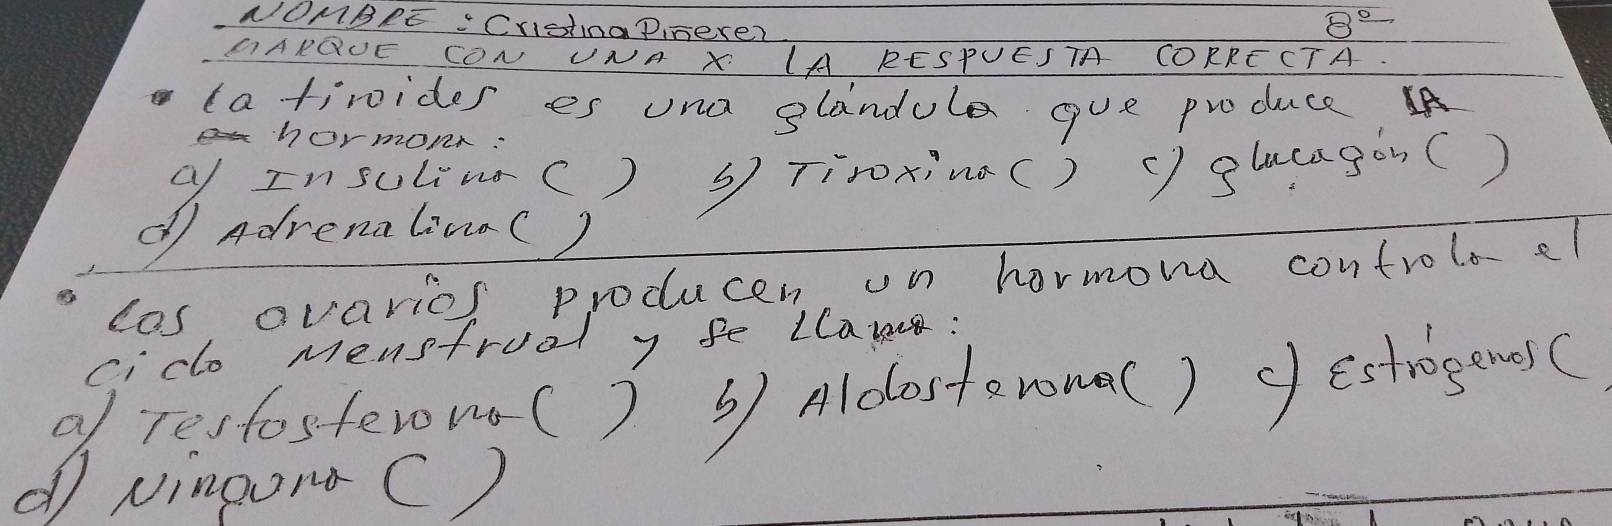 NOMBRE: Cristina Piñerez 8º
MARQUE CON UNA X LA RESPUESTA CORRECTA.
• la tiroides es una glándula que produce LA
hormona:
a) Insulina ( ) b) Tiroxina ( ) c) glucagón ( )
d) Adrenalina ( )
• Los ovarios producen un hormona controla el
ciclo Menstrual y se llama:
a) Testosterona ( ) b) Aldosterona ( ) c) Estrógenos (
d) Ninguna ( )